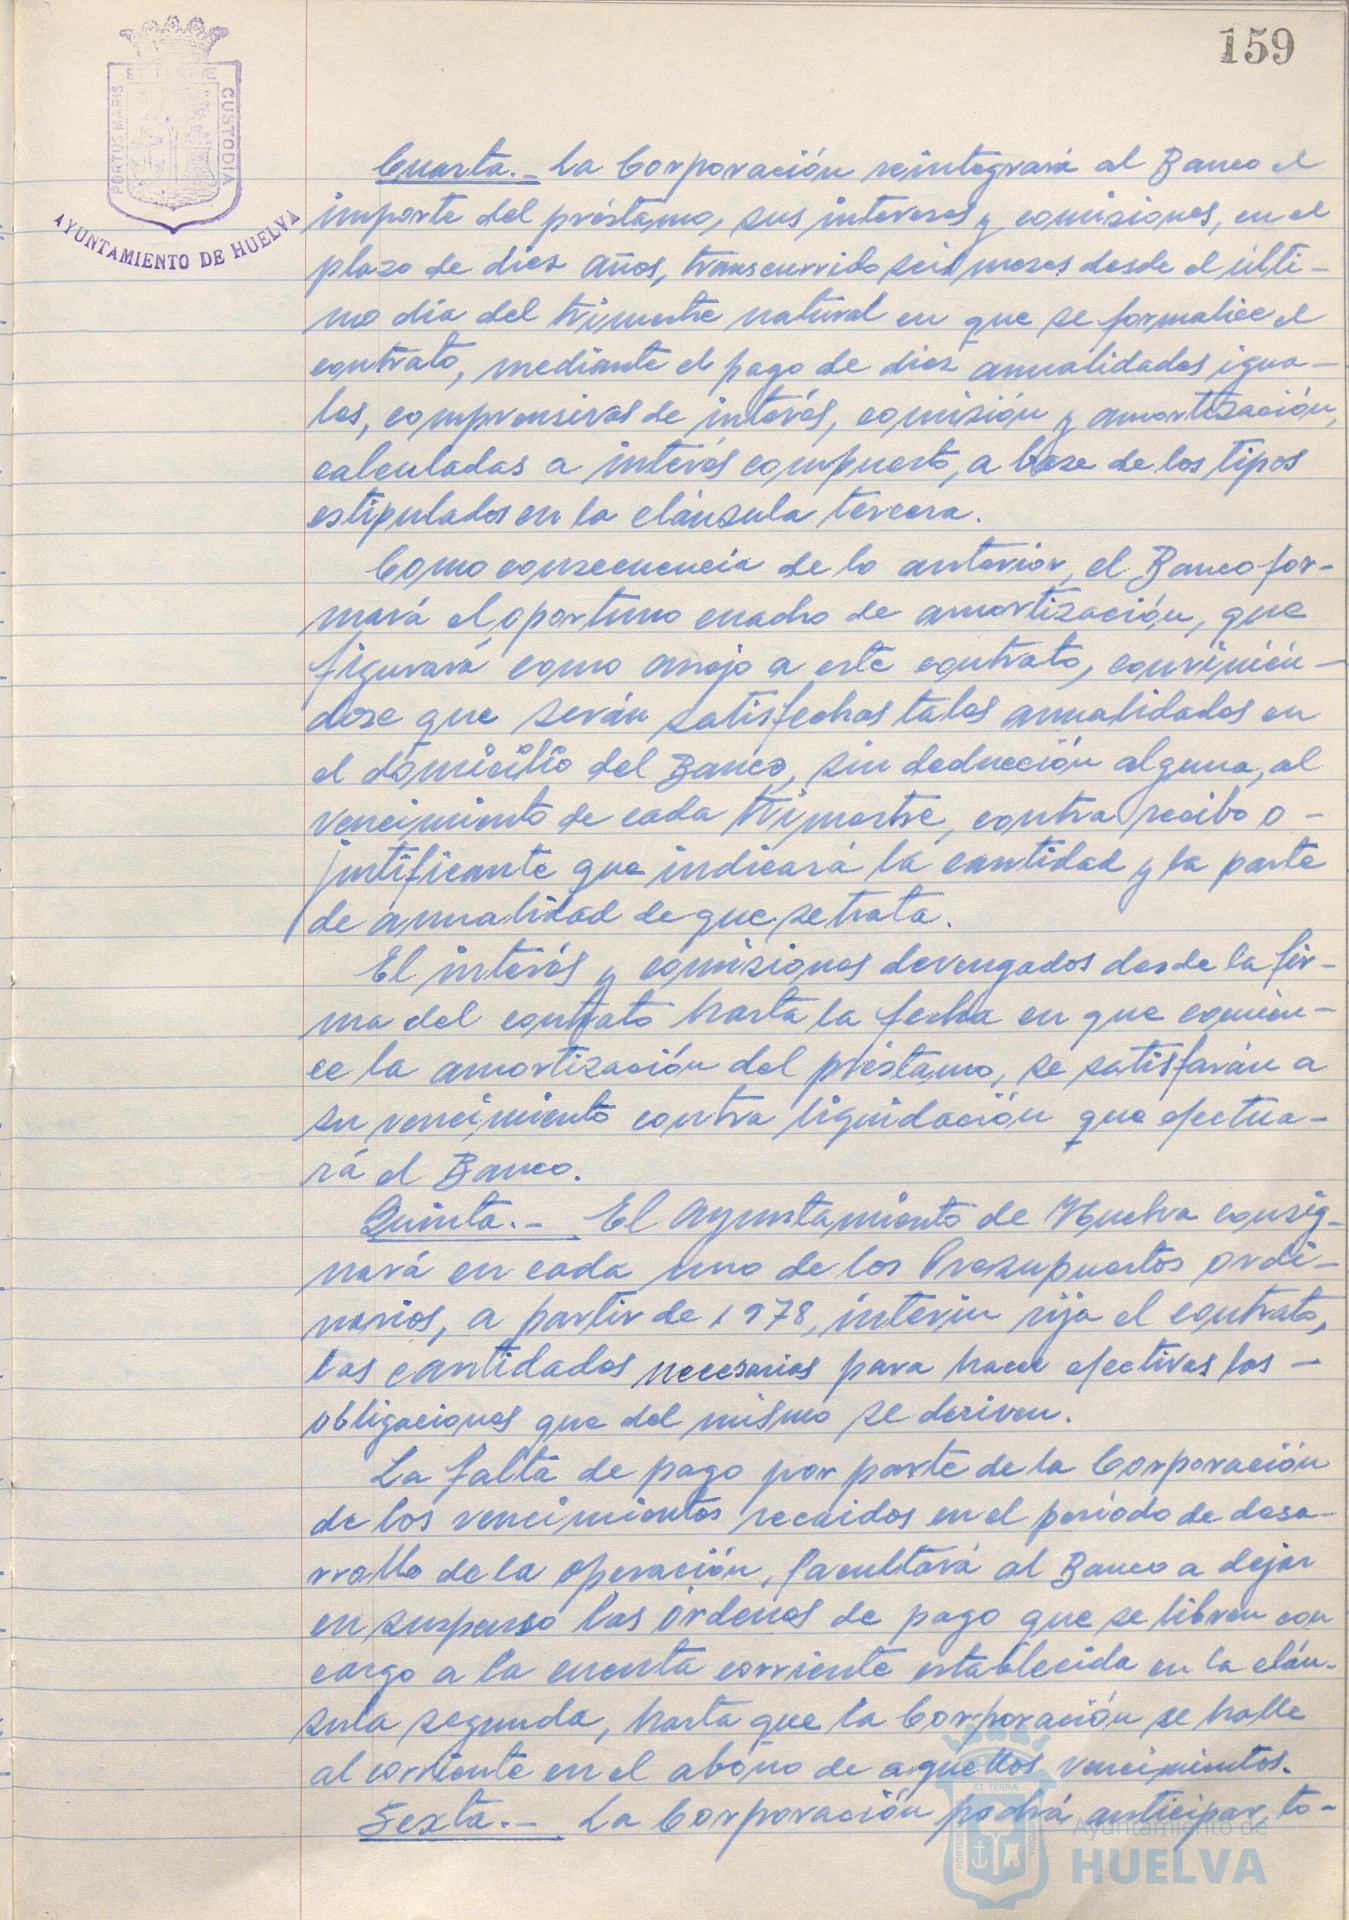 159
PORTUS MARIS
ET TERRÆ
CUSTODIA
AYUNTAMIENTO DE HUELVA
Cuarta.- La Corporación reintegrará al Banco el
importe del préstamo, sus intereses y comisiones, en el
plazo de diez años, transcurrido seis meses desde el últi-
mo dia del trimestre natural en que se formalice el
contrato, mediante el pago de diez anualidades igua-
les, comprensivas de interés, comisión y amortización,
calculadas a interés compuesto, a base de los tipos
estipulados en la cláusula tercera.
Como consecuencia de lo anterior, el Banco for-
mará el oportuno cuadro de amortización, que
figurará como anejo a este contrato, convinién-
dose que serán satisfechas tales anualidades en
el domicilio del Banco, sin deducción alguna, al
vencimiento de cada trimestre, contra recibo o-
justificante que indicará la cantidad y la parte
de anualidad de que se trata.
El interés y comisiones devengados desde la fir-
ma del contrato hasta la fecha en que comien-
ce la amortización del préstamo, se satisfarán a
su vencimiento contra liquidación que efectua-
rá el Banco.
Quinta.- El Ayuntamiento de Huelva consig-
nará en cada uno de los Presupuestos ordi-
narios, a partir de 1978, interin rija el contrato,
las cantidades necesarias para hacer efectivas las-
obligaciones que del mismo se deriven.
La falta de pago por parte de la Corporación
de los vencimientos recaidos en el periodo de desa-
rrollo de la operación, facultará al Banco a dejar
en suspenso las órdenes de pago que se libren con
cargo a la cuenta corriente establecida en la cláu-
sula segunda, hasta que la Corporación se halle
al corriente en el abono de aquellos vencimientos.
Sexta.- La Corporación podrá anticipar, to-
Ayuntamiento de
HUELVA